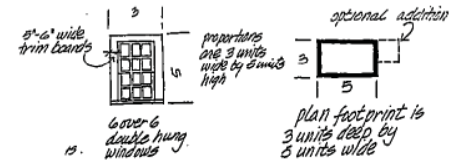 3
5"-6" wide
trim boards
proportions
are 3 units
wide by 5 units
high
5
6 over 6
double hung
windows
optional addition
3
5
plan footprint is
3 units deep by
5 units wide